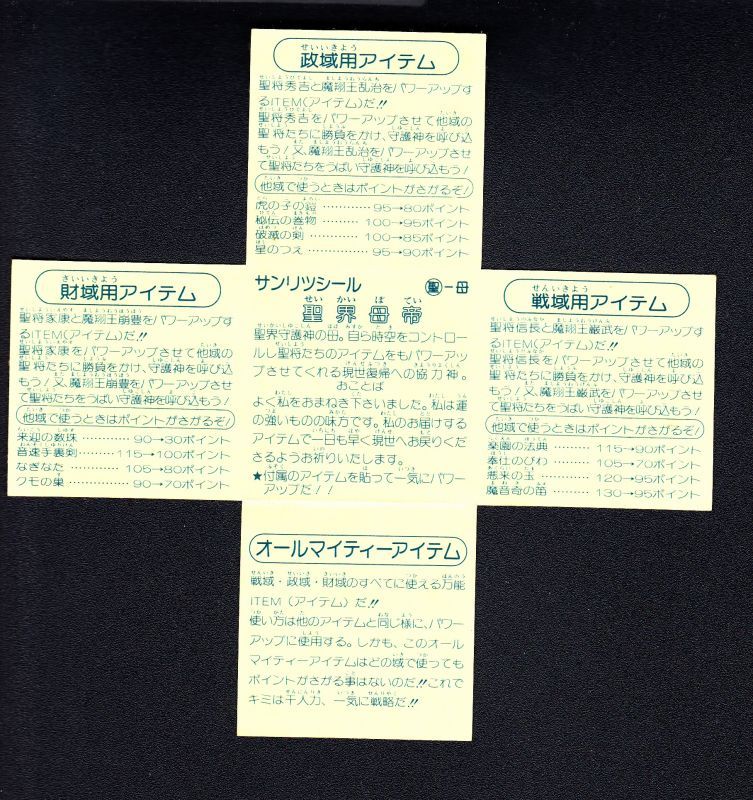 政域用アイテム
聖将秀吉と魔翔王乱治をパワーアップす
るITEM(アイテム)だ!!
聖将秀吉をパワーアップさせて他域の
聖将たちに勝負をかけ、守護神を呼び込
もう!又、魔翔王乱治をパワーアップさせ
て聖将たちをうばい守護神を呼び込もう!
他域で使うときはポイントがさがるぞ!
虎の子の鎧…………95→80ポイント
秘伝の巻物…………100→95ポイント
破滅の剣……………100→85ポイント
星のつえ……………95→90ポイント
財域用アイテム
聖将家康と魔翔王崩豊をパワーアップす
るITEM(アイテム)だ!!
聖将家康をパワーアップさせて他域の
聖将たちに勝負をかけ、守護神を呼び込
もう!又、魔翔王崩豊をパワーアップさせ
て聖将たちをうばい守護神を呼び込もう!
他域で使うときはポイントがさがるぞ!
来迎の数珠…………90→30ポイント
音速手裏剣………115→100ポイント
なぎなた……………105→80ポイント
クモの巣……………90→70ポイント
サンリツシール ㊕聖-母
聖界母帝
聖界守護神の母。自ら時空をコントロー
ルし聖将たちのアイテムをもパワーアッ
プさせてくれる現世復帰への協力神。
おことば
よく私をおまねき下さいました。私は運
の強いものの味方です。私のお届けする
アイテムで一日も早く現世へお戻りくだ
さるようお祈りいたします。
★付属のアイテムを貼って一気にパワー
アップだ!!
戦域用アイテム
聖将信長と魔翔王厳武をパワーアップす
るITEM(アイテム)だ!!
聖将信長をパワーアップさせて他域の
聖将たちに勝負をかけ、守護神を呼び込
もう!又、魔翔王厳武をパワーアップさせ
て聖将たちをうばい守護神を呼び込もう!
他域で使うときはポイントがさがるぞ!
楽園の法典…………115→90ポイント
奉仕のびわ…………105→70ポイント
悪来の玉……………120→95ポイント
魔音奇の笛…………130→95ポイント
オールマイティーアイテム
戦域・政域・財域のすべてに使える万能
ITEM(アイテム)だ!!
使い方は他のアイテムと同じ様に、パワー
アップに使用する。しかも、このオール
マイティーアイテムはどの域で使っても
ポイントがさがる事はないのだ!!これで
キミは千人力、一気に戦略だ!!